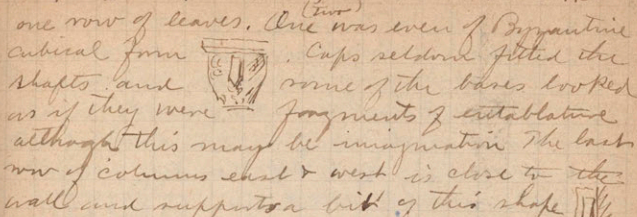 one row of leaves. One (two) was even of Byzantine
cubical form . Caps seldom fitted the
shafts and some of the bases looked
as if they were fragments of entablature
although this may be imagination The last
row of columns east & west is close to the
wall and supports a bit of this shape